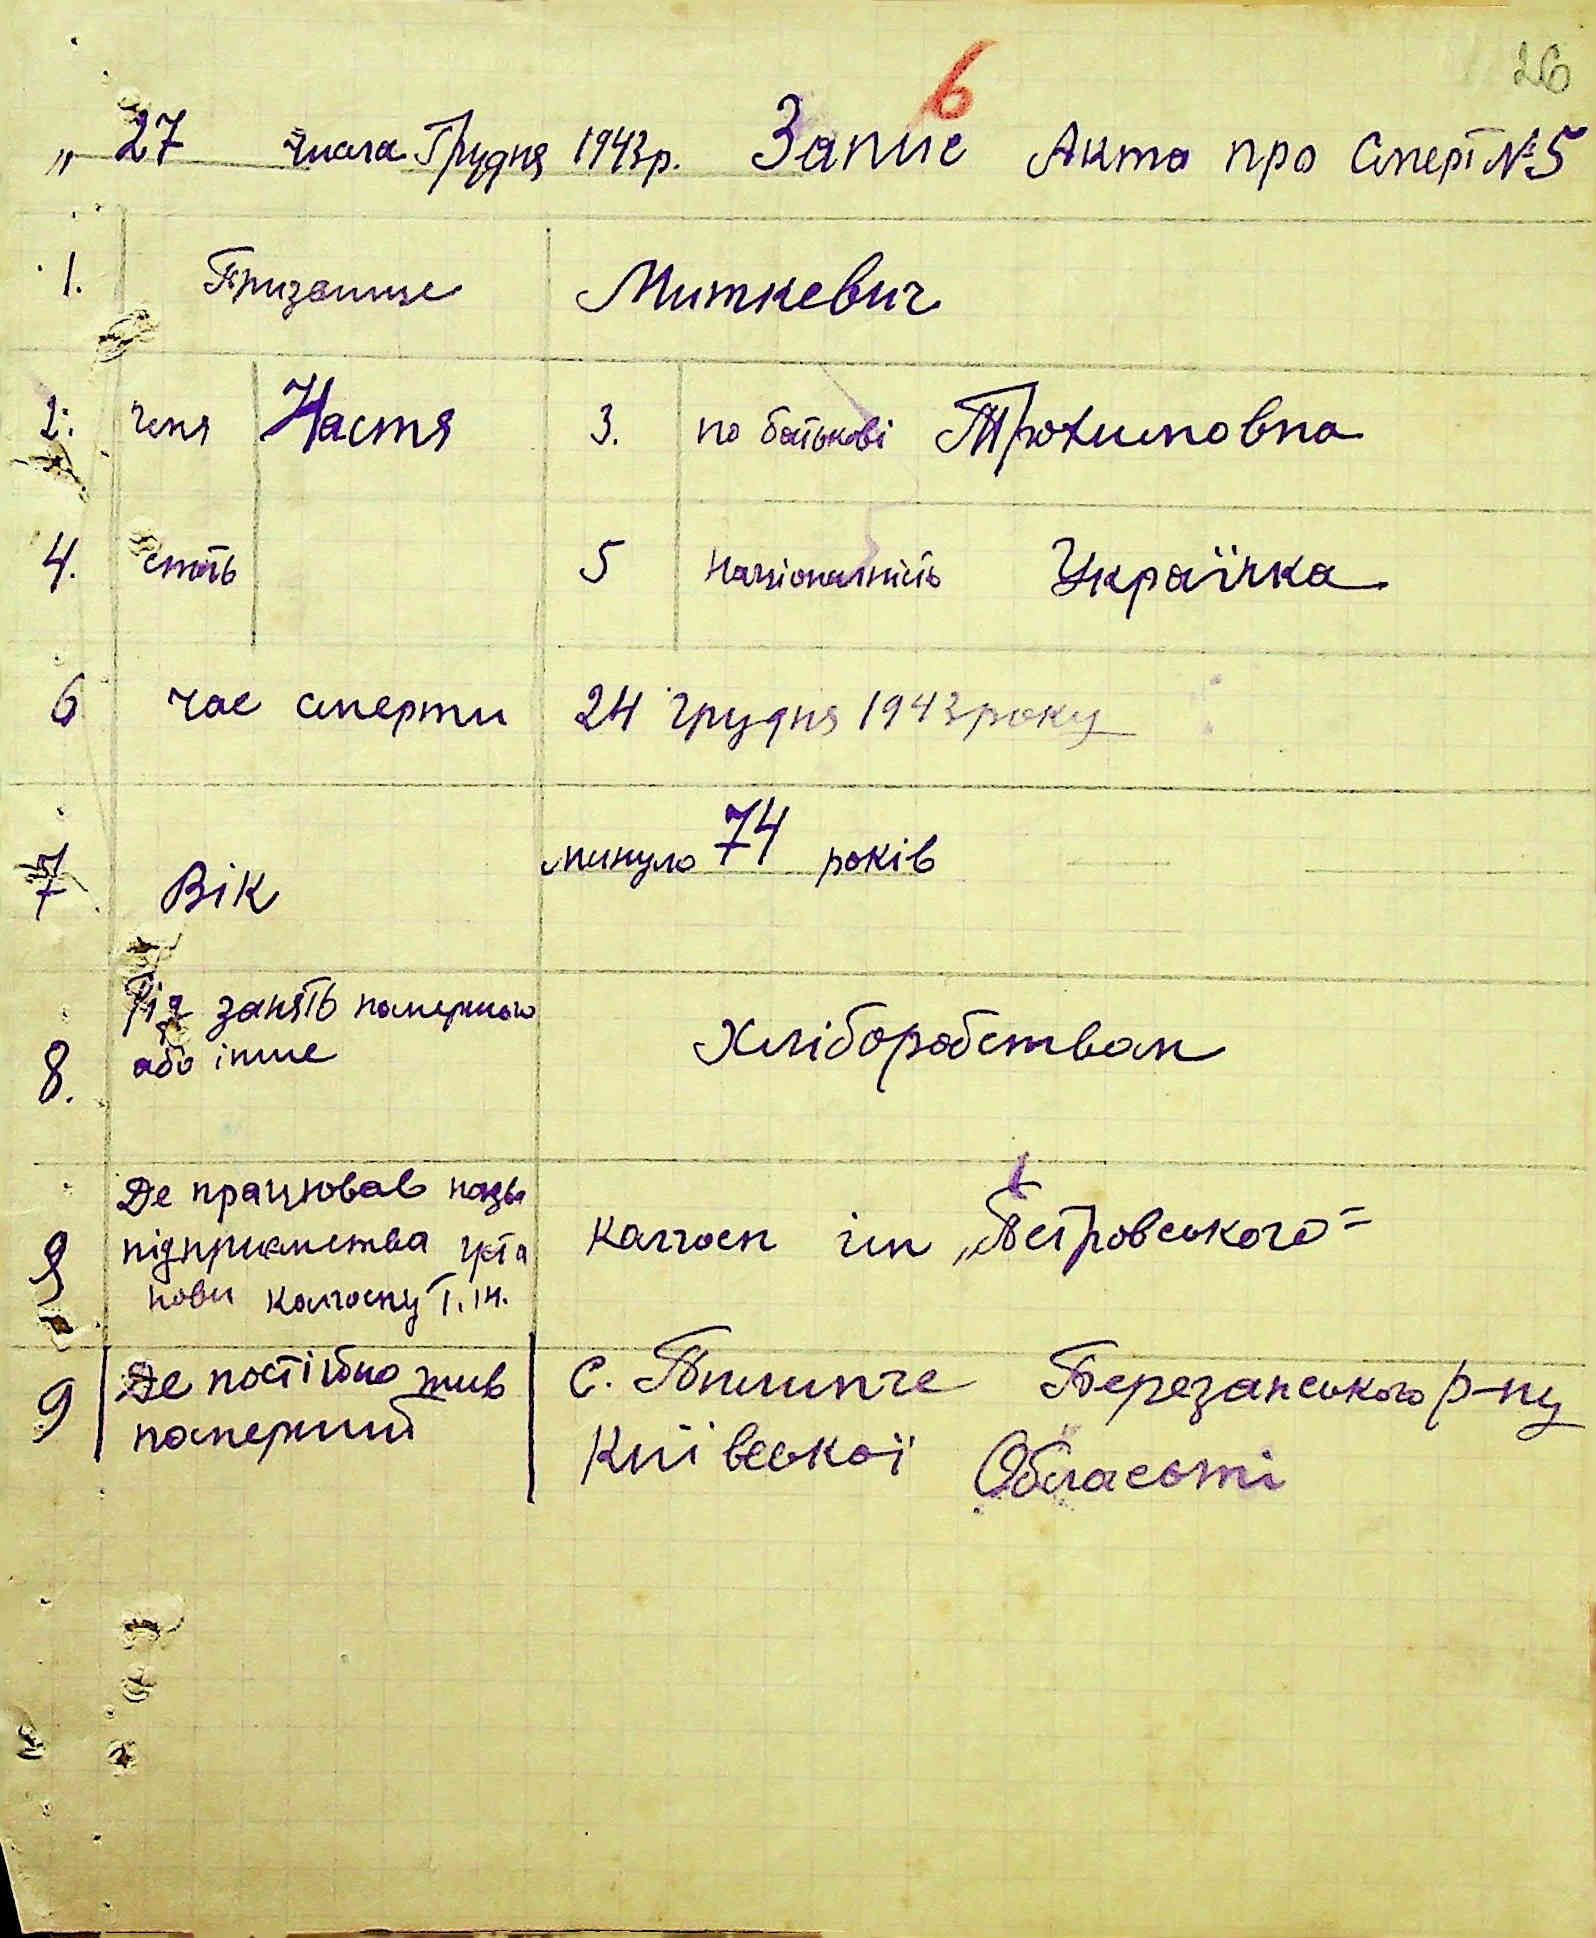 6
26
„ 27 числа Грудня 1943р. Запис Акта про Смерт №5
1. Призвище Миткевич
2. імя Настя 3. по батькові Трохимовна
4. стать 5 національність Українка
6 час смерти 24 грудня 1943 року
7 Вік минуло 74 років
Рід занять помершого
8. або інше Хліборобствам
Де працював назва
9 підприємства уста колгосп ім „Петровського"
нови колгоспу т. ін.
9 Де постійно жив с. Пилипче Березанського р-ну
померший Київської Області